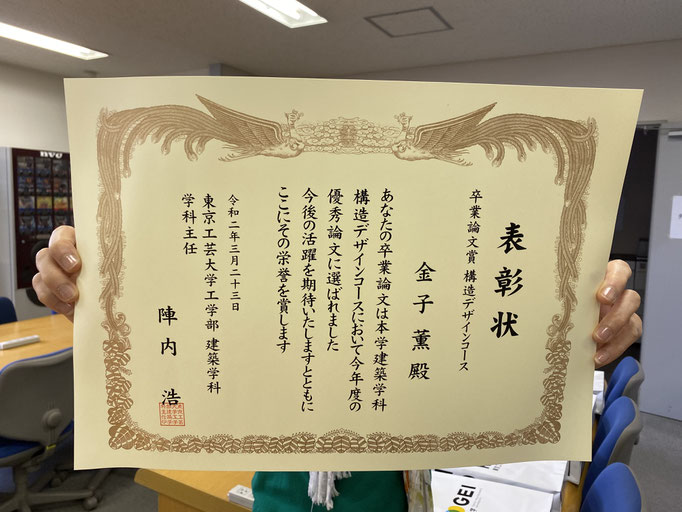 表彰状
卒業論文賞 構造デザインコース
金子 薫 殿
あなたの卒業論文は本学建築学科
構造デザインコースにおいて今年度の
優秀論文に選ばれました
今後の活躍を期待いたしますとともに
ここにその栄誉を賞します
令和二年三月二十三日
東京工芸大学工学部 建築学科
学科主任
陣内 浩
GEI